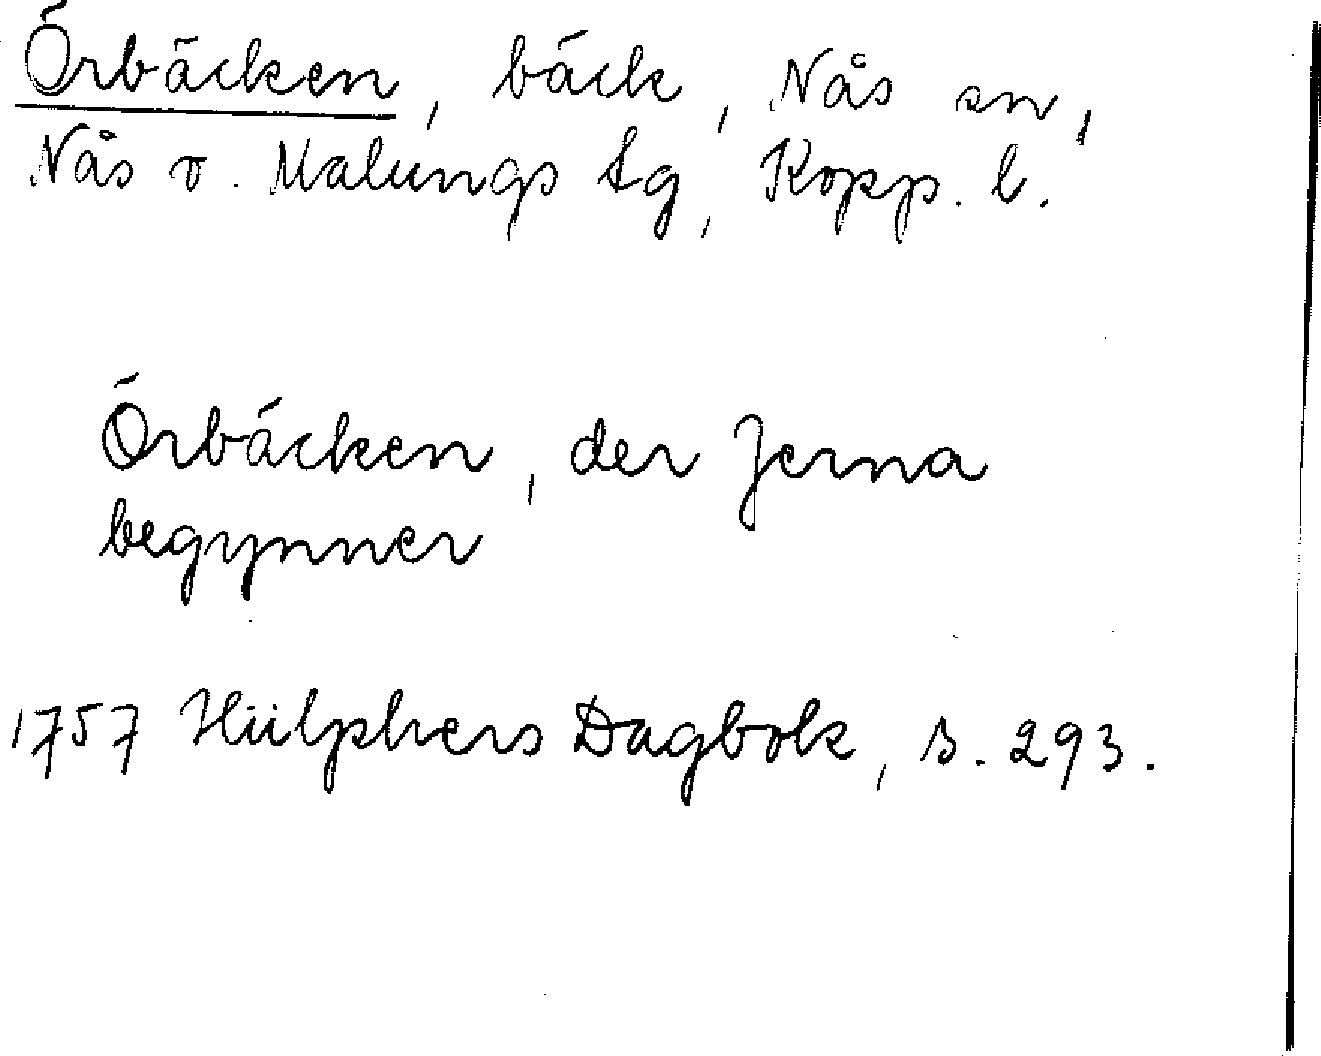 Örbäcken, bäck, Nås sn,
Nås o. Malungs tg, Kopp. l.
Örbäcken, der Jerna
begynner
1757 Hülphers Dagbok, s. 293.